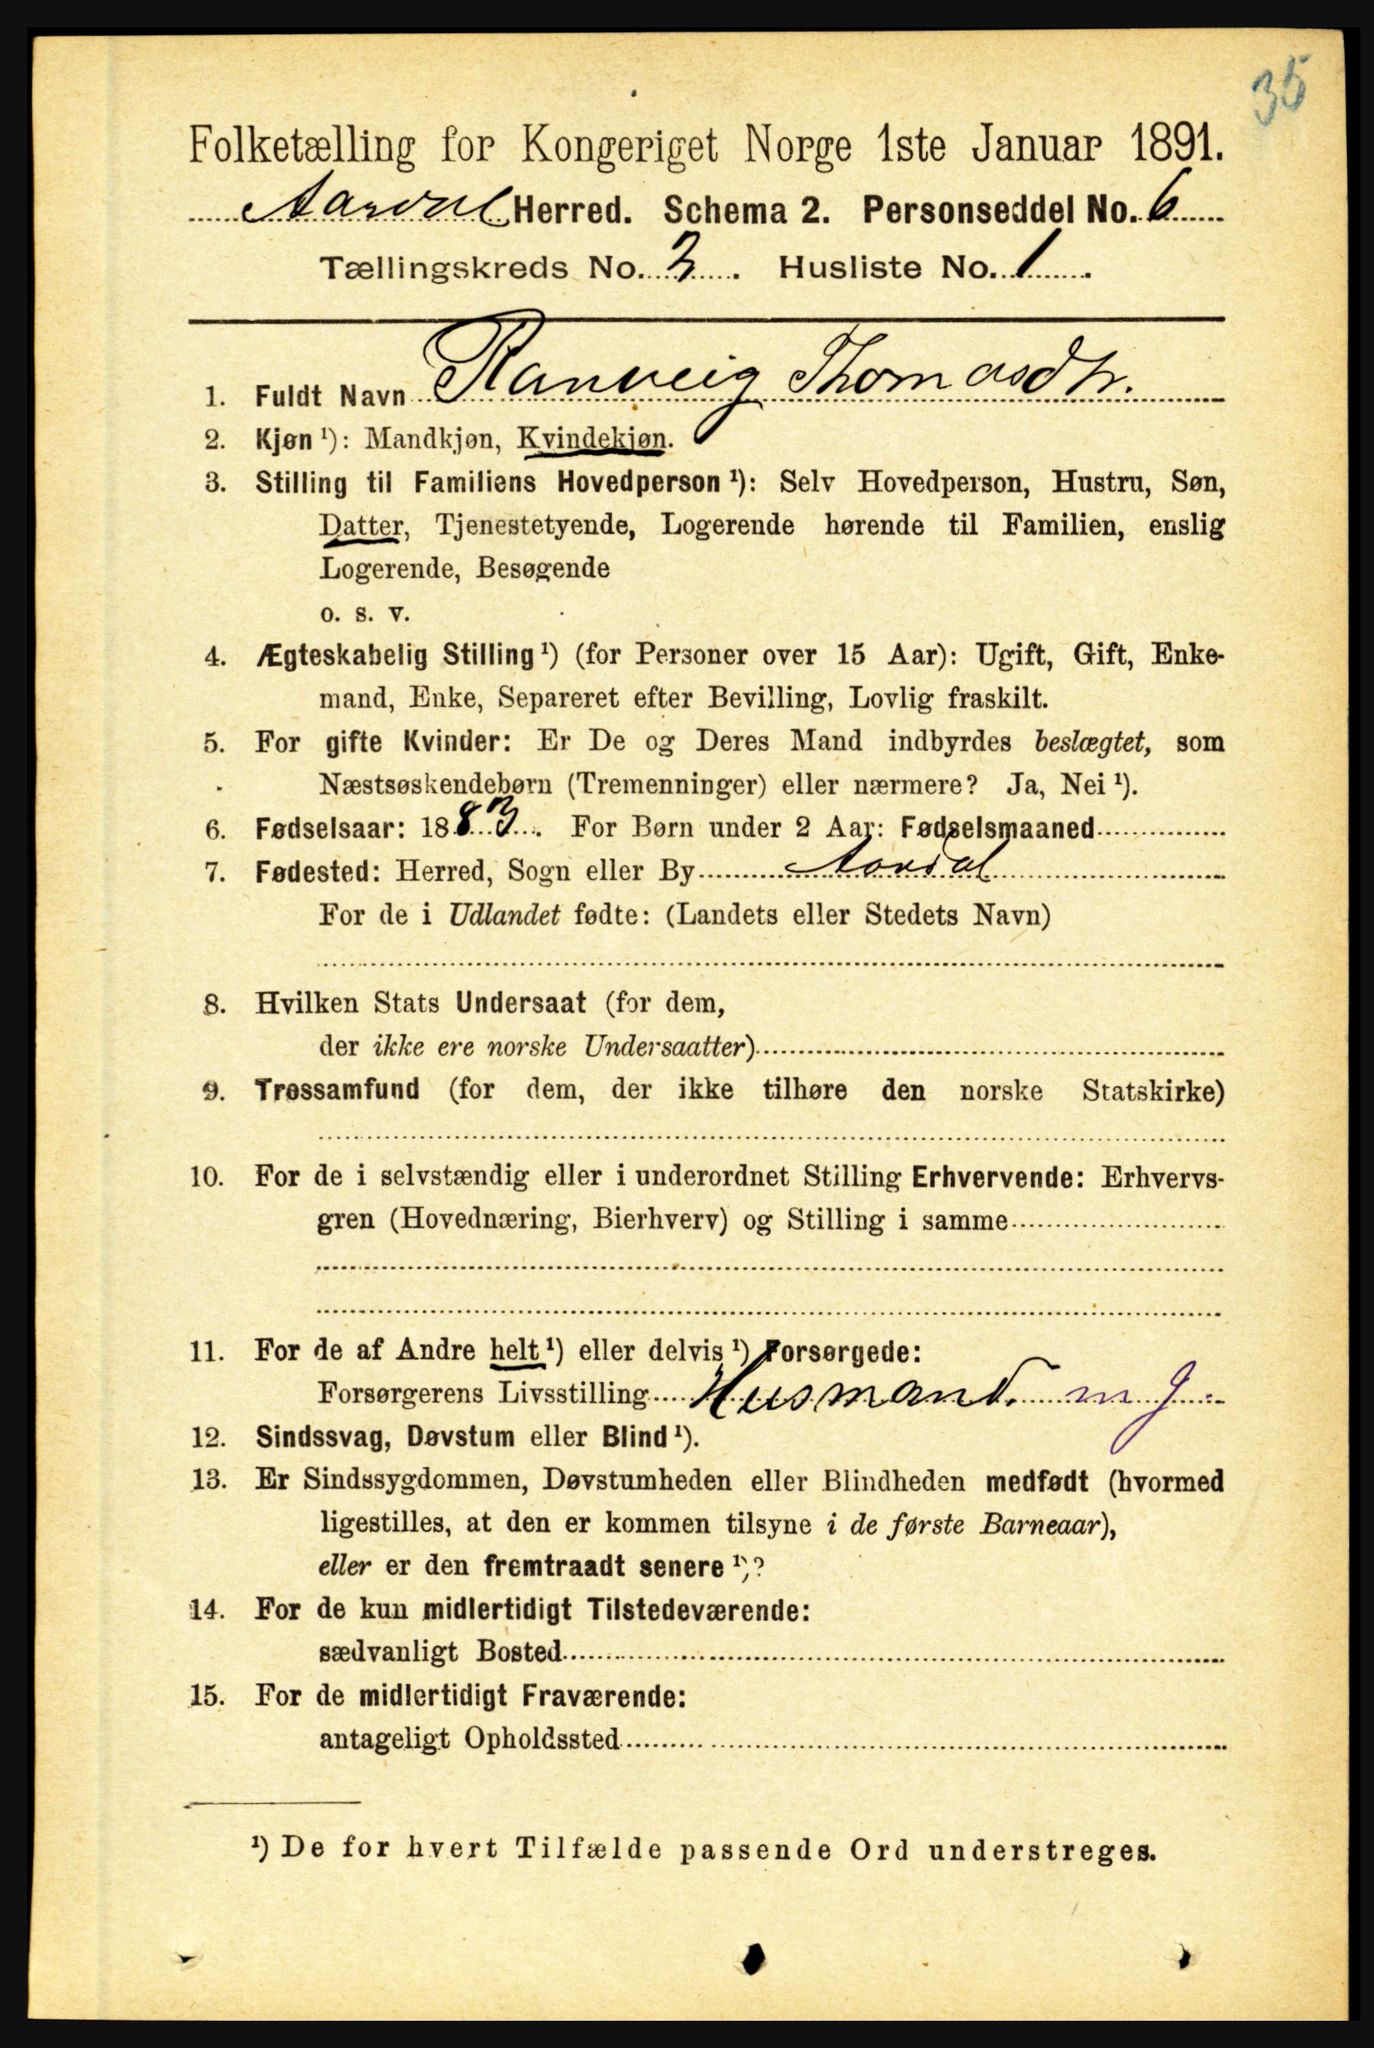 35
Folketælling for Kongeriget Norge 1ste Januar 1891.
Aardal Herred. Schema 2. Personseddel No. 6
Tællingskreds No. 3. Husliste No. 1.
1. Fuldt Navn Ranveig Thomasdtr.
2. Kjøn ¹): Mandkjøn, Kvindekjøn.
3. Stilling til Familiens Hovedperson ¹): Selv Hovedperson, Hustru, Søn,
Datter, Tjenestetyende, Logerende hørende til Familien, enslig
Logerende, Besøgende
o. s. v.
4. Ægteskabelig Stilling ¹) (for Personer over 15 Aar): Ugift, Gift, Enke-
mand, Enke, Separeret efter Bevilling, Lovlig fraskilt.
5. For gifte Kvinder: Er De og Deres Mand indbyrdes beslægtet, som
Næstsøskendebørn (Tremenninger) eller nærmere? Ja, Nei ¹).
6. Fødselsaar: 1883. For Børn under 2 Aar: Fødselsmaaned
7. Fødested: Herred, Sogn eller By Aardal
For de i Udlandet fødte: (Landets eller Stedets Navn)
8. Hvilken Stats Undersaat (for dem,
der ikke ere norske Undersaatter)
9. Trossamfund (for dem, der ikke tilhøre den norske Statskirke)
10. For de i selvstændig eller i underordnet Stilling Erhvervende: Erhvervs-
gren (Hovednæring, Bierhverv) og Stilling i samme
11. For de af Andre helt ¹) eller delvis ¹) Forsørgede:
Forsørgerens Livsstilling Husmand. m j.
12. Sindssvag, Døvstum eller Blind ¹).
13. Er Sindssygdommen, Døvstumheden eller Blindheden medfødt (hvormed
ligestilles, at den er kommen tilsyne i de første Barneaar),
eller er den fremtraadt senere ¹)?
14. For de kun midlertidigt Tilstedeværende:
sædvanligt Bosted
15. For de midlertidigt Fraværende:
antageligt Opholdssted
¹) De for hvert Tilfælde passende Ord understreges.